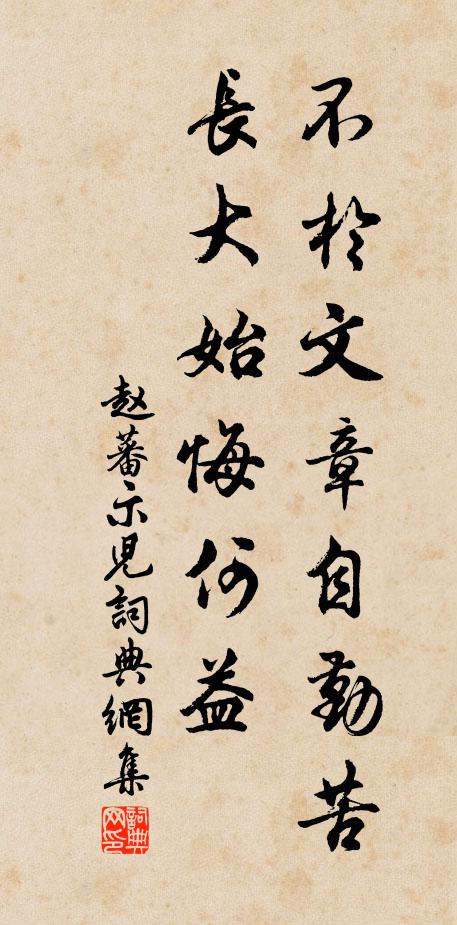 不於文章自勤苦
長大始悔何益
赵蕃示児詞典網集
詞典网印